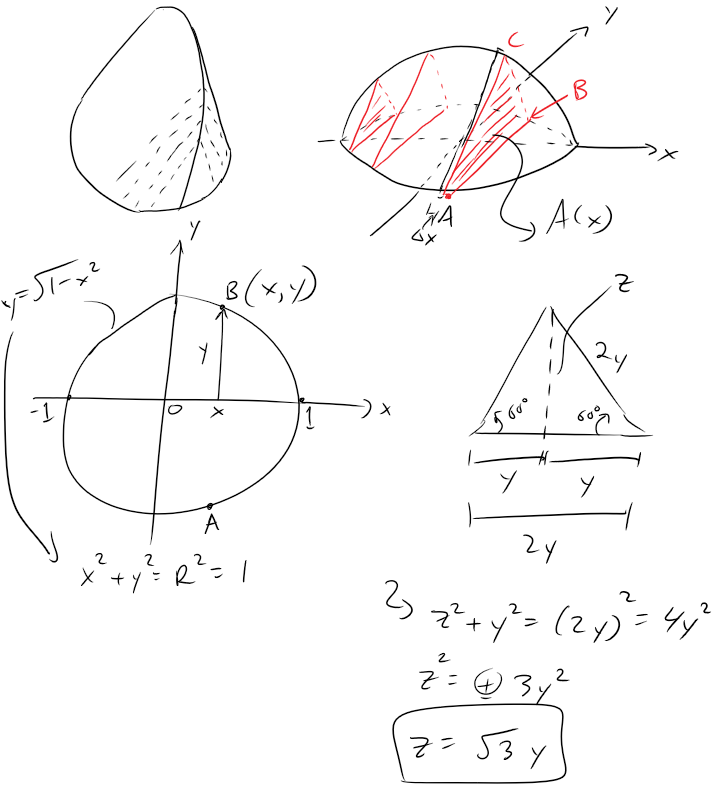 y
C
B
x
A
Δx
A(x)
y
y = √1-x²
B(x,y)
y
-1
0
x
1
x
A
x² + y² = R² = 1
z
2y
60°
60°
y
y
2y
z² + y² = (2y)² = 4y²
z² = ⊕ 3y²
z = √3 y